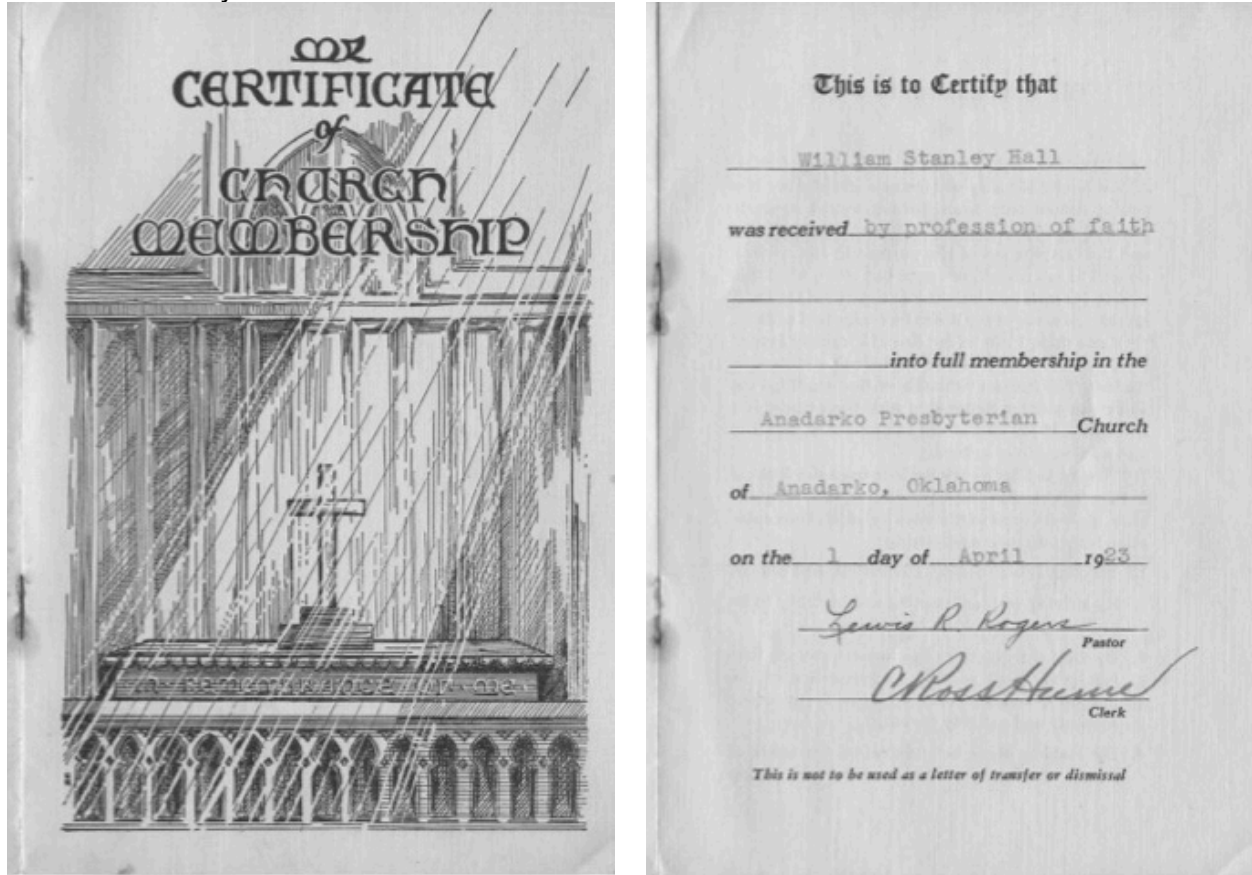 MY
CERTIFICATE
of
CHURCH
MEMBERSHIP
IN REMEMBRANCE OF ME
This is to Certify that
William Stanley Hall
was received by profession of faith
into full membership in the
Anadarko Presbyterian Church
of Anadarko, Oklahoma
on the 1 day of April 1923
Lewis R. Rogers
Pastor
C Ross Hume
Clerk
This is not to be used as a letter of transfer or dismissal